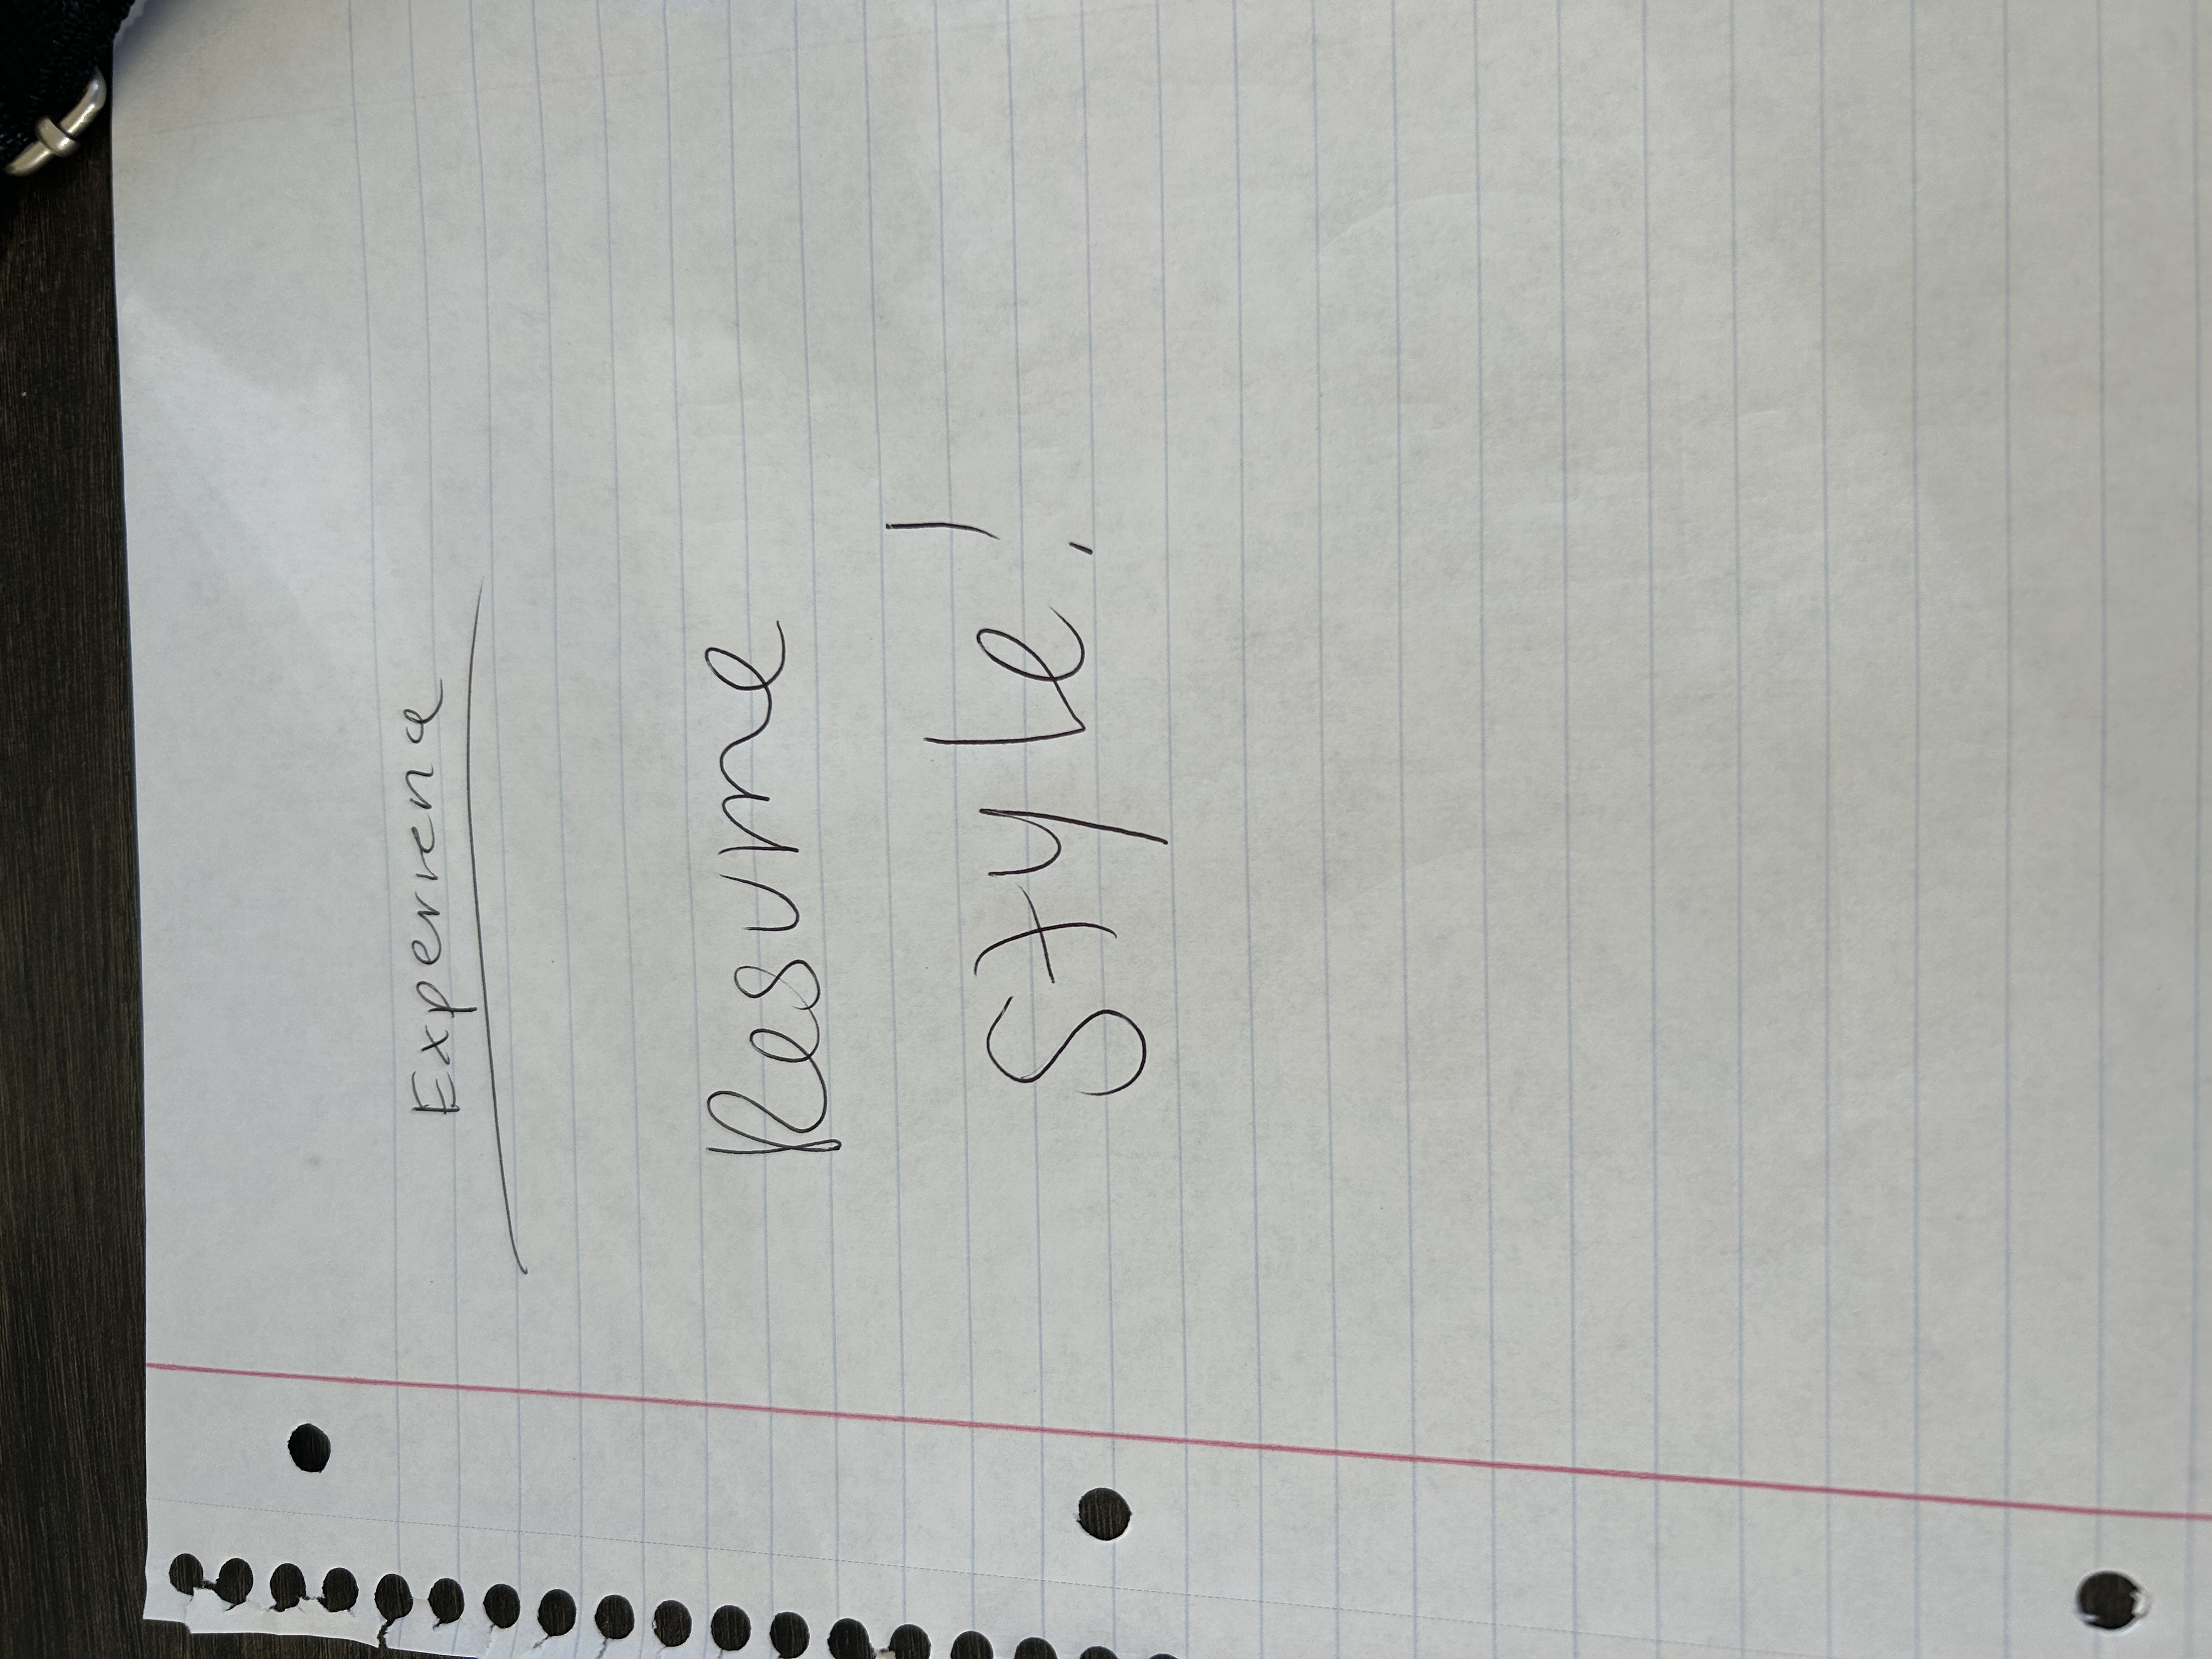 Experience
Resume
Style!